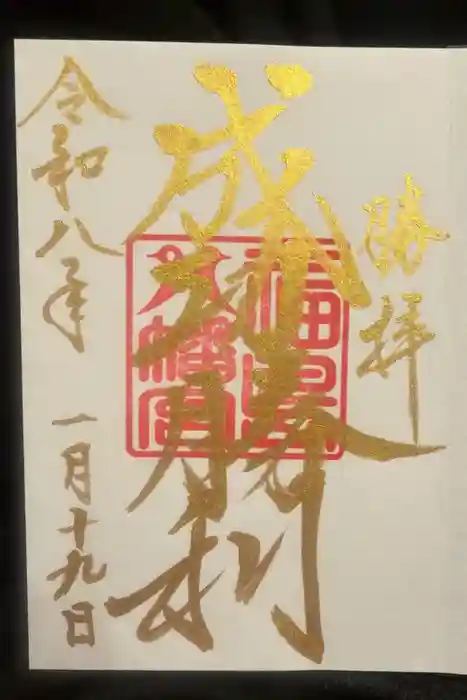 勝拝
成功勝利
福島
八幡宮
令和八年 一月十九日